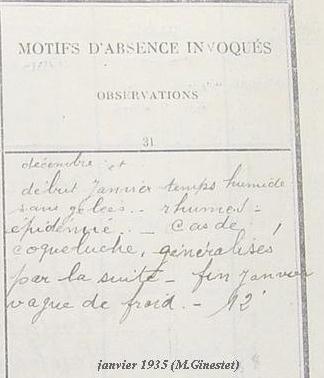 MOTIFS D'ABSENCE INVOQUÉS
OBSERVATIONS
31
décembre et
début janvier temps humide
sans gelées.. rhumes =
épidémie.. - cas de
coqueluche, généralisés
par la suite - fin janvier
vague de froid. - 12°
janvier 1935 (M.Ginestet)